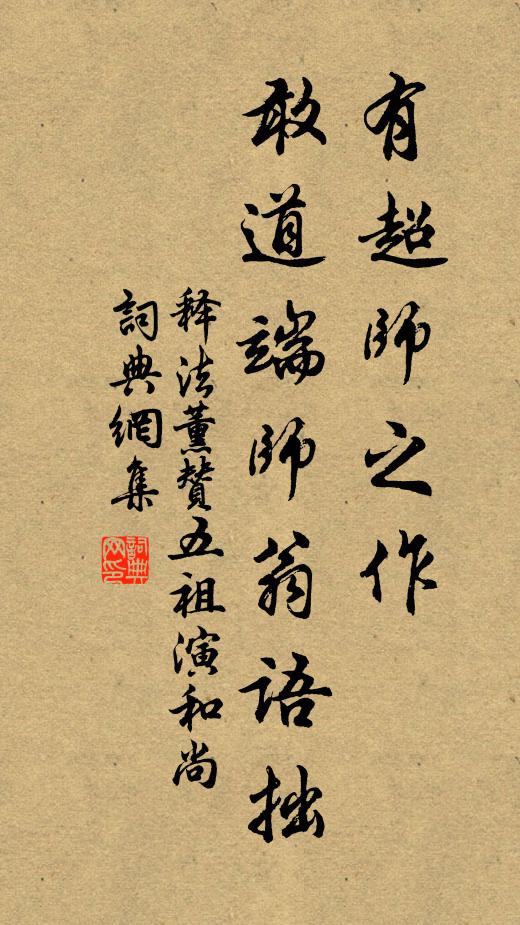 有超師之作
敢道端師翁語拙
释法薰贊五祖演和尚
詞典網集
詞典
网印